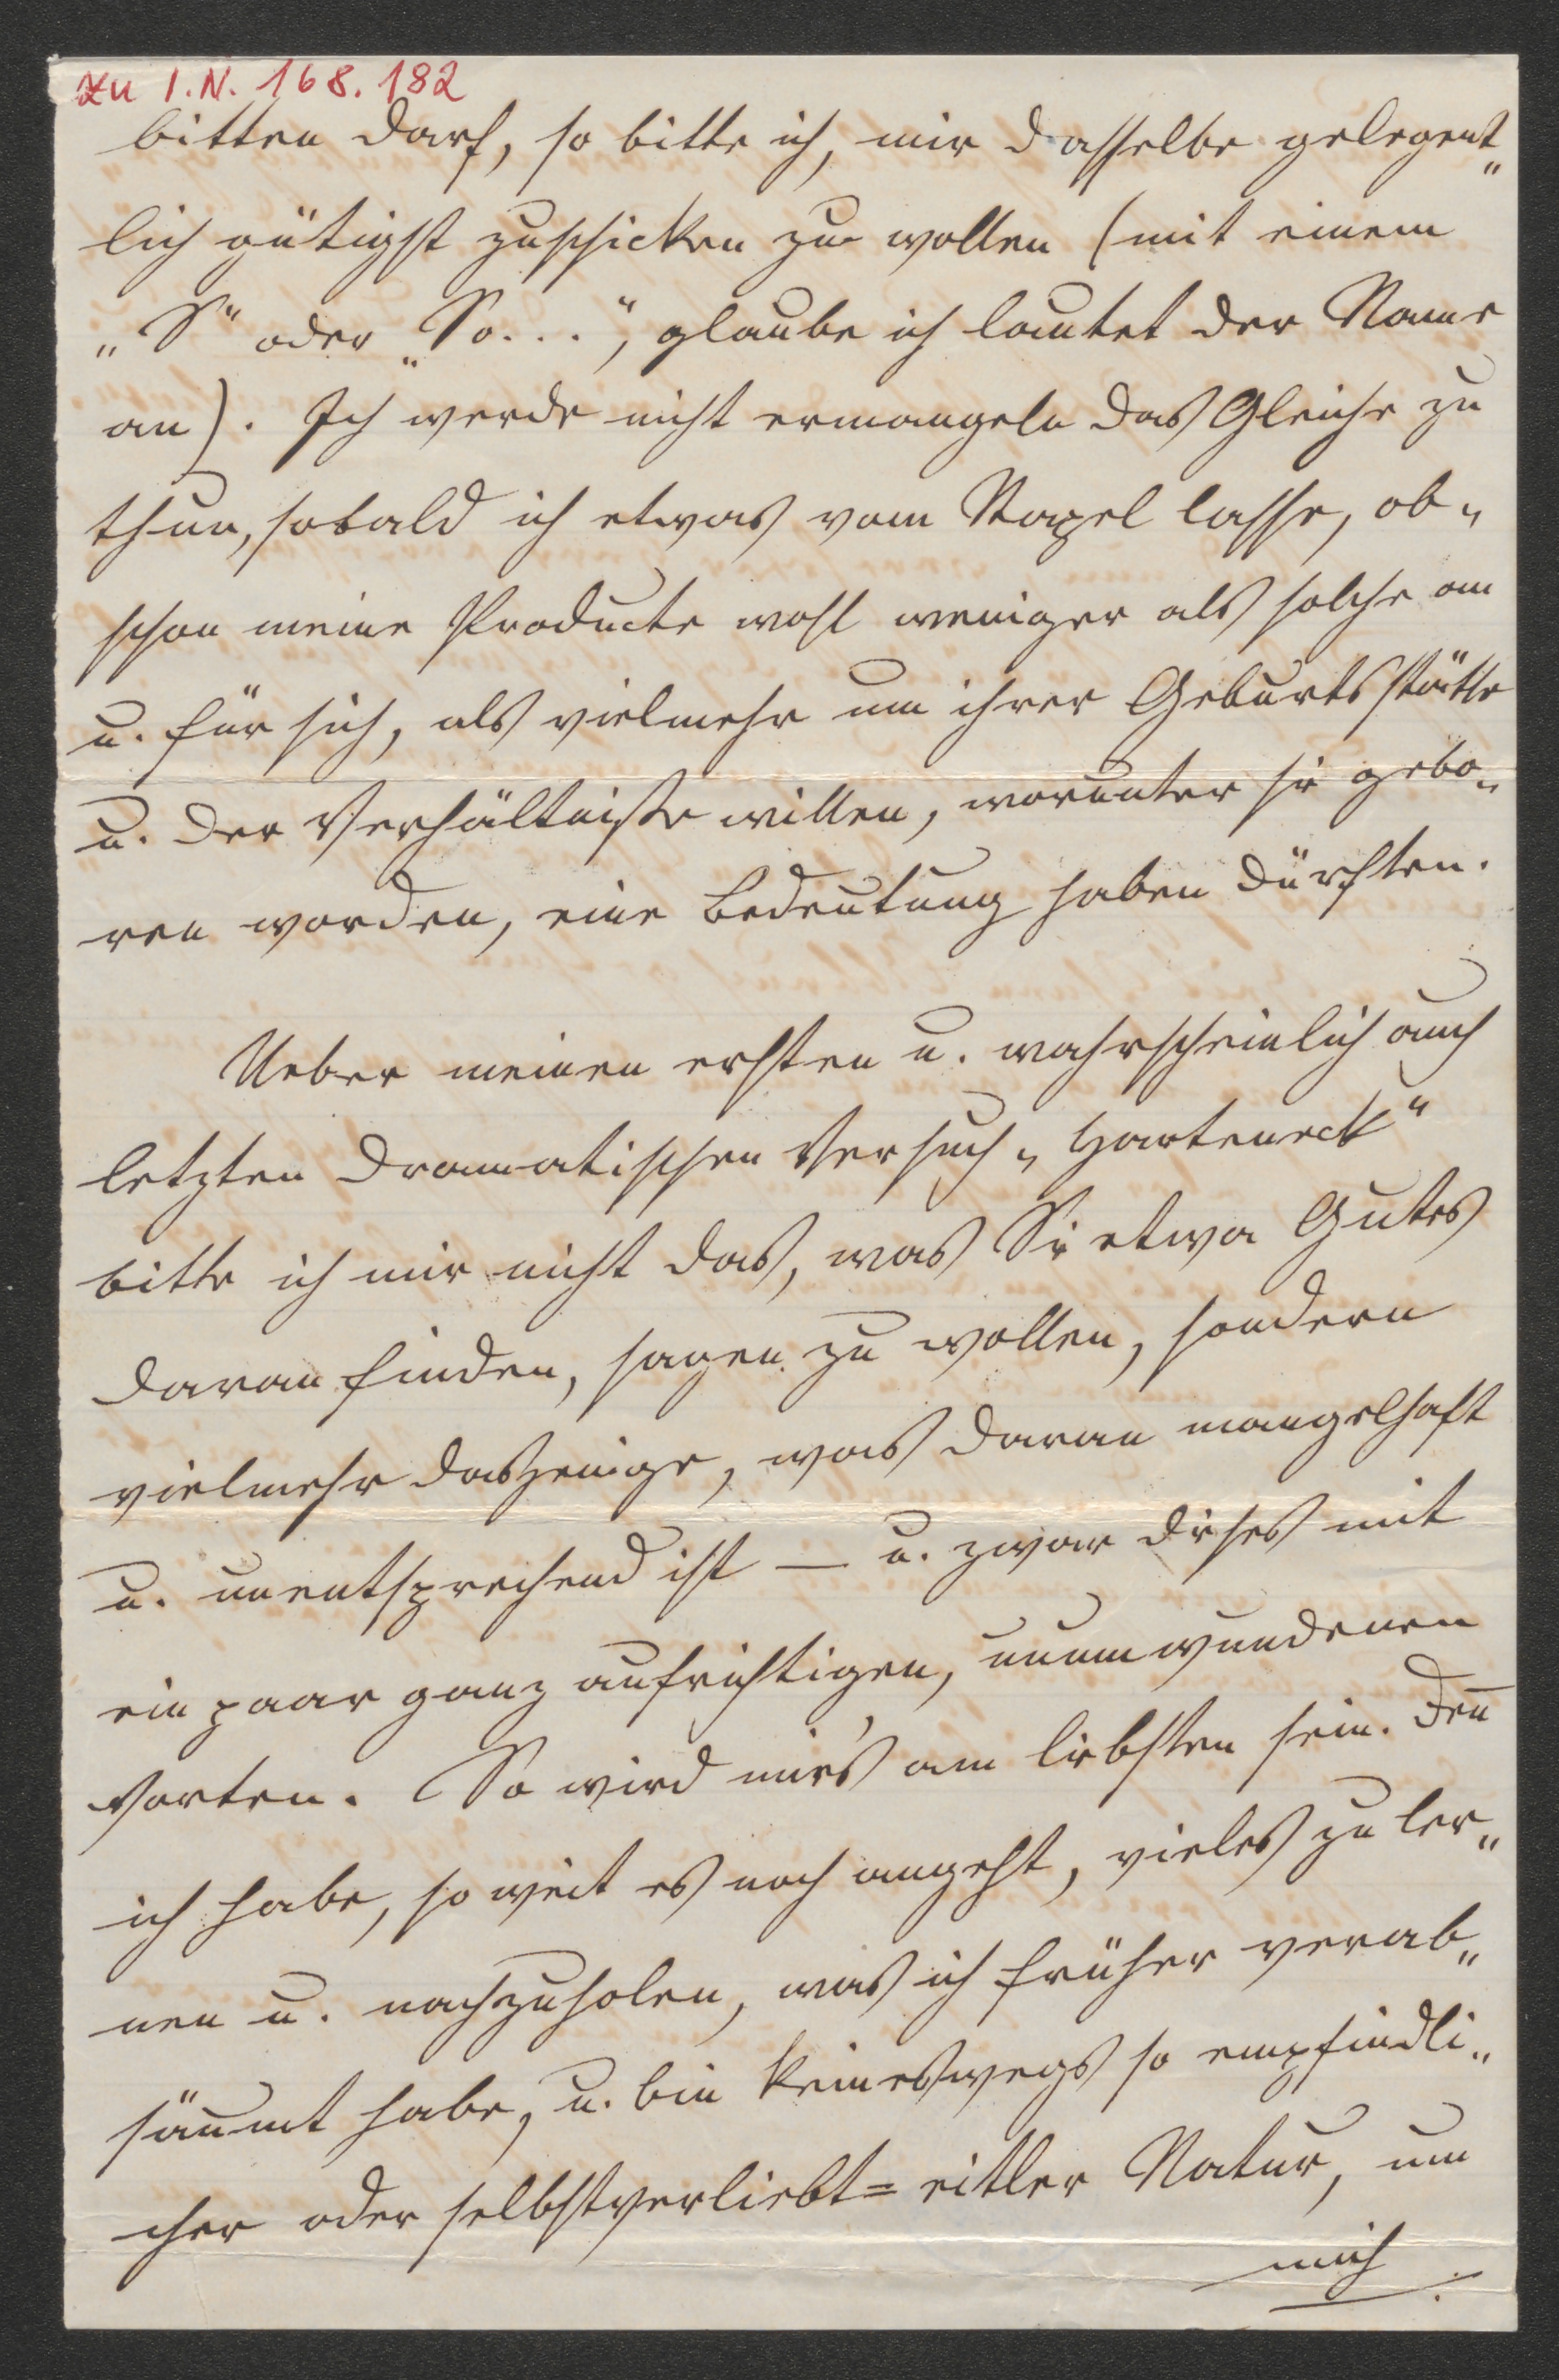 zu I.N. 168.182
bitten darf, so bitte ich, mir dasselbe gelegent„
lich gütigst zuschicken zu wollen (mit einem
„S“ oder „So...“, glaube ich lautet der Name
an). Ich werde nicht ermangeln das Gleiche zu
thun, sobald ich etwas vom Stapel lasse, ob„
schon meine Producte wohl weniger als solche an
u. für sich, als vielmehr um ihrer Geburtsstätte
u. der Verhältniße willen, worunter sie gebo„
ren worden, eine Bedeutung haben dürften.
Ueber meinen ersten u. wahrscheinlich auch
letzten dramatischen Versuch „Harteneck“
bitte ich mir nicht das, was Sie etwa Gutes
daran finden, sagen zu wollen, sondern
vielmehr dasjenige, was daran mangelhaft
u. unentsprechend ist — u. zwar dieses mit
ein paar ganz aufrichtigen, unumwundenen
Worten. So wird mir's am liebsten sein. Den̄
ich habe, so weit es noch angeht, vieles zu ler„
nen u. nachzuholen, was ich früher verab„
säumt habe, u. bin keineswegs so empfindli„
cher oder selbstverliebt= eitler Natur, um
mich